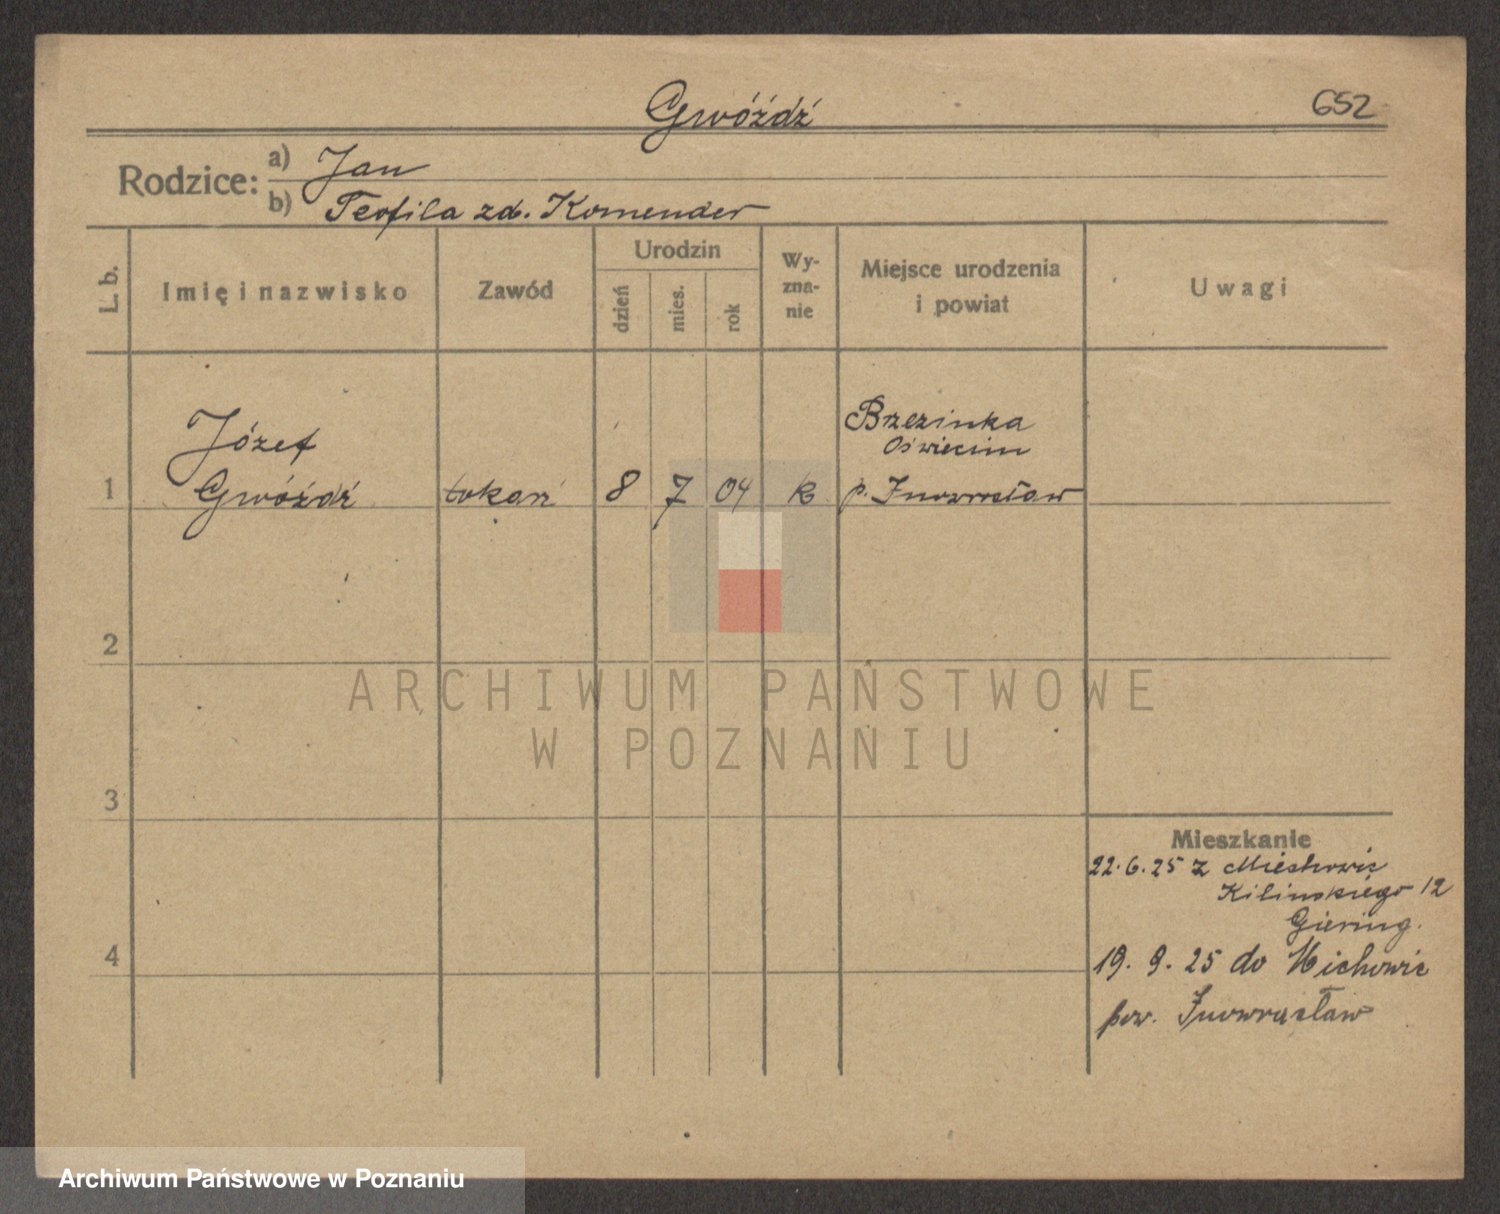 Gwóźdź
652
Rodzice: a) Jan
b) Teofila zd. Komender
L. b.
Imię i nazwisko
Zawód
Urodzin
dzień
mies.
rok
Wy-
zna-
nie
Miejsce urodzenia
i powiat
Uwagi
Józef
Brzezinka
Oświecim
1 Gwóźdź tokarz 8 7 04 k p. Inowrocław
2
ARCHIWUM PAŃSTWOWE
W POZNANIU
3
Mieszkanie
22.6.25 z
Kilinskiego 12
Giering.
4
19. 9. 25 do
pow. Inowrocław
Archiwum Państwowe w Poznaniu